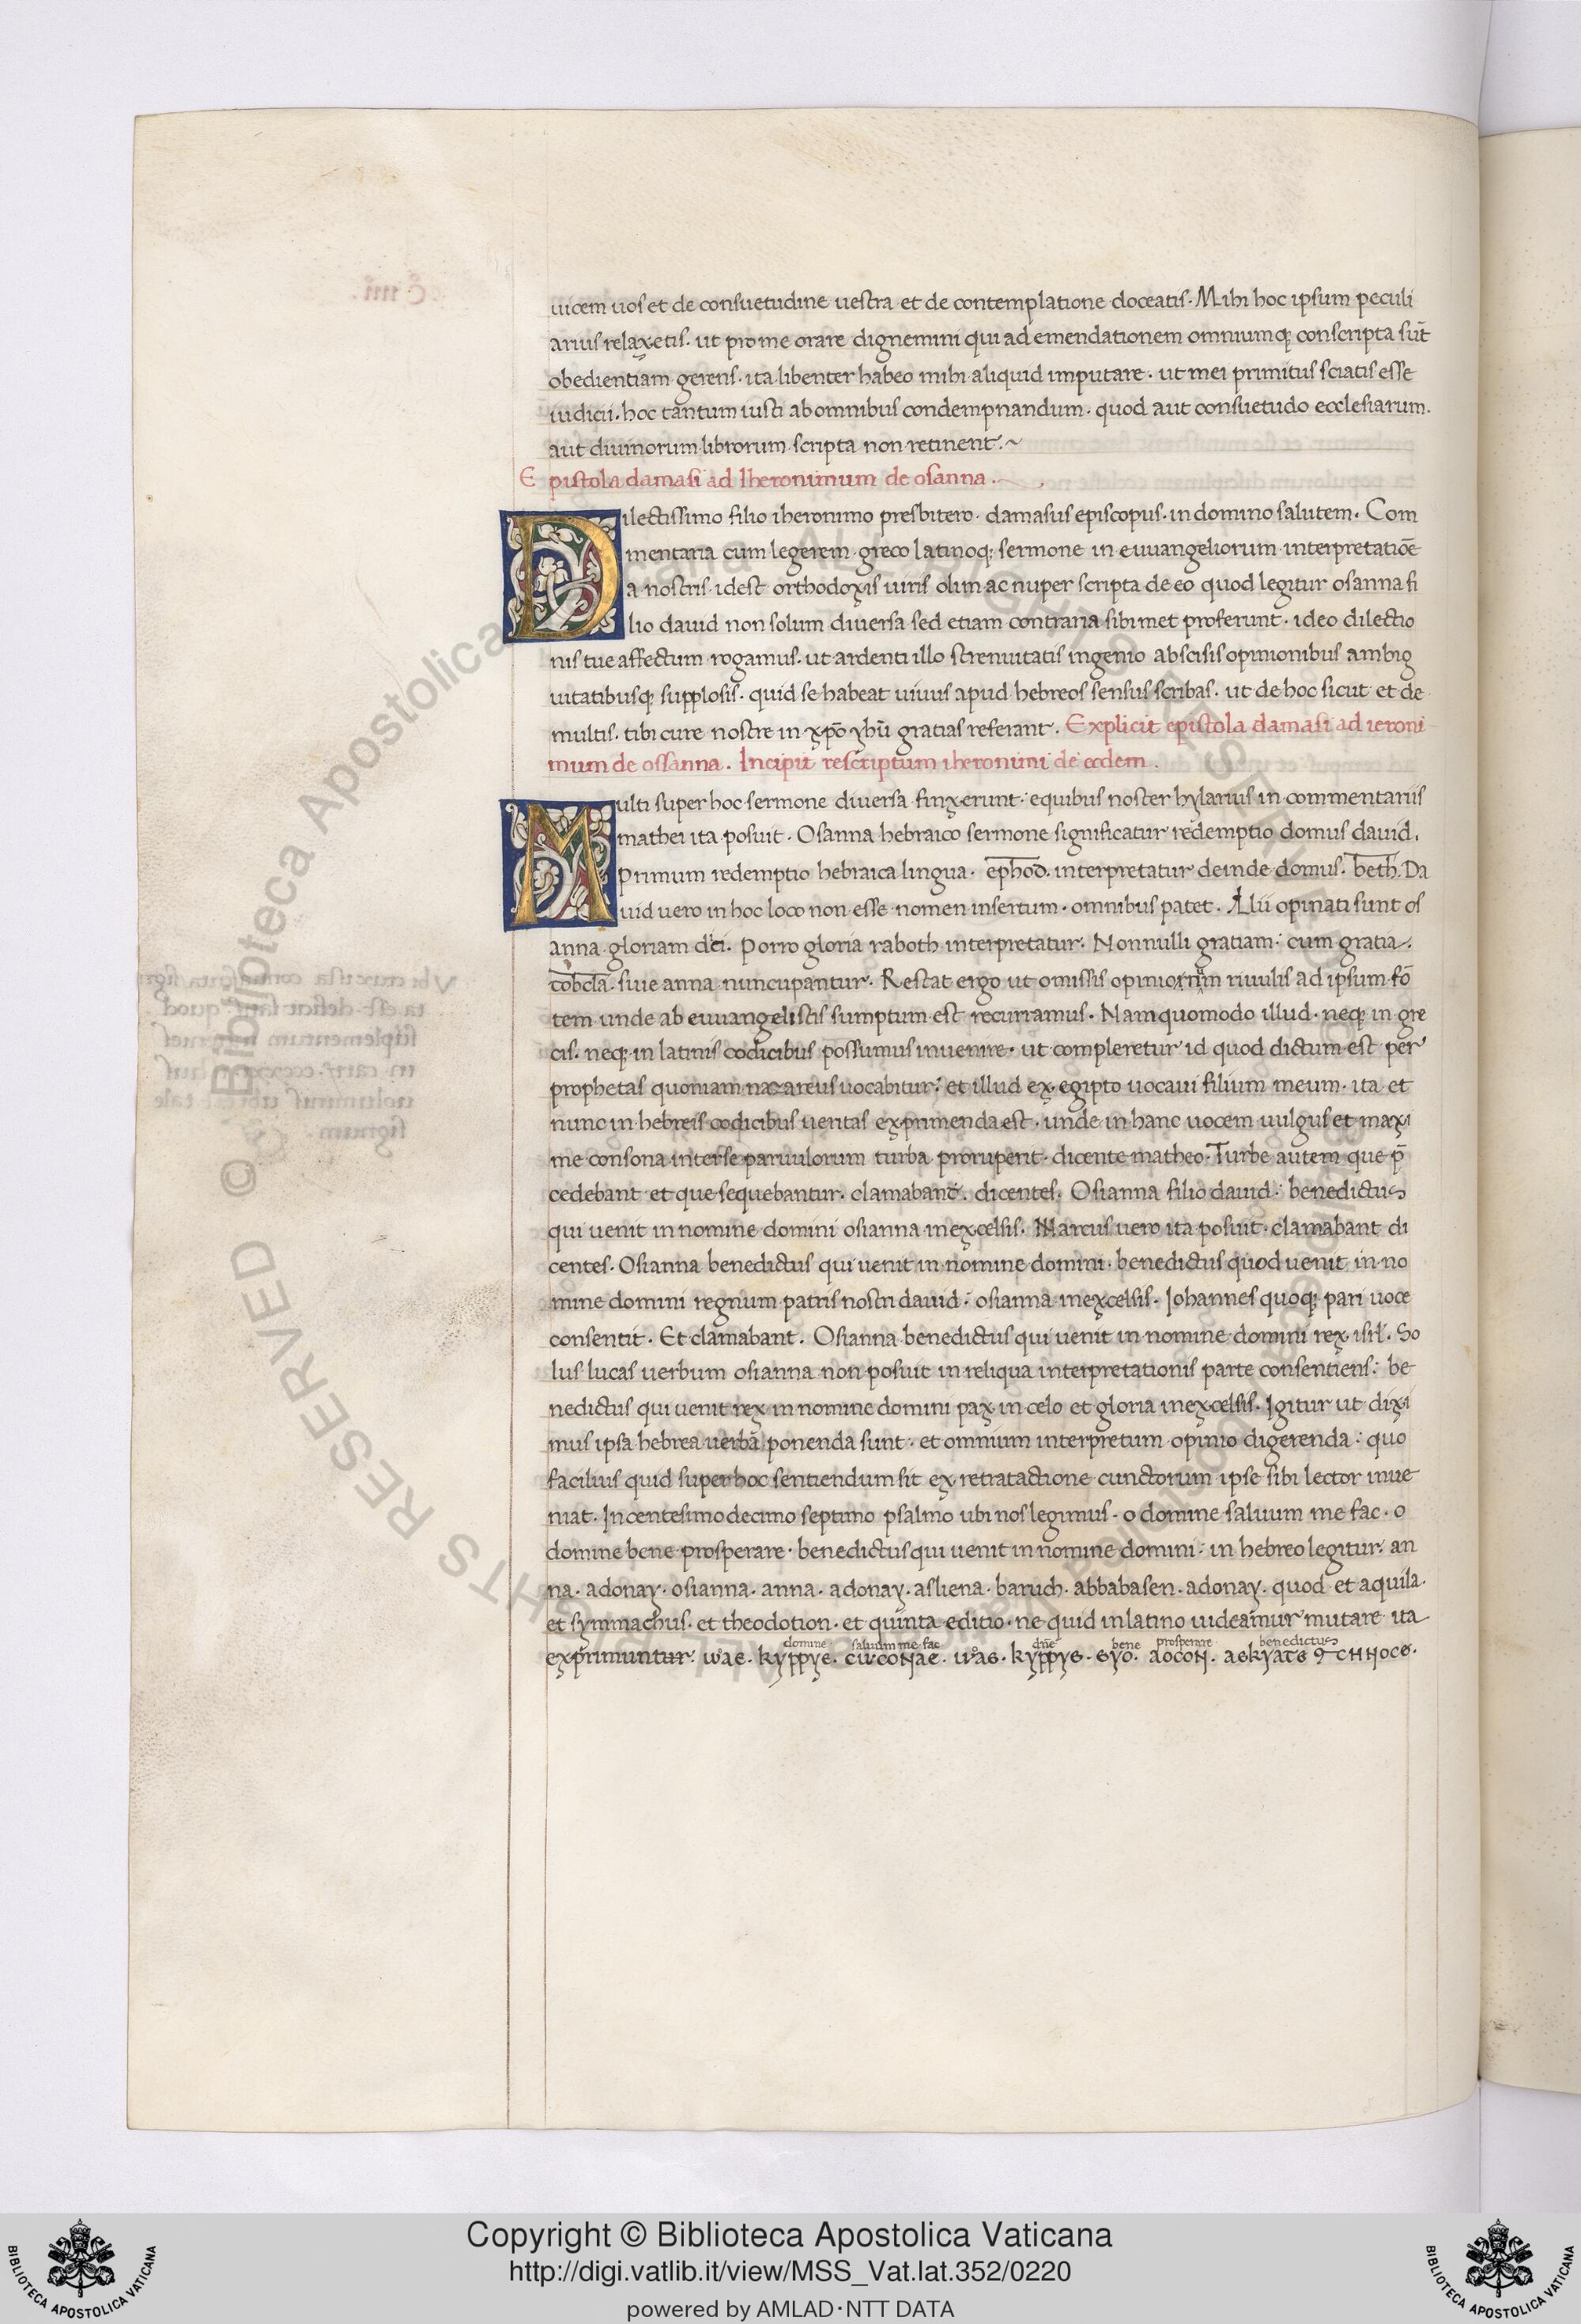 uicem uos et de consuetudine uestra et de contemplatione doceatis. Mihi hoc ipsum peculi
arius relaxetis. ut pro me orare dignemini qui ad emendationem omniumq; conscripta sūt
obedientiam gerens. ita libenter habeo mihi aliquid imputare. ut mei primitus sciatis esse
iudicii. hoc tantum iusti ab omnibus condempnandum. quod aut consuetudo ecclesiarum.
aut diuinorum librorum scripta non retinent.~
Epistola damasi ad Iheronimum de osanna.
Dilectissimo filio iheronimo presbitero. damasus episcopus. in domino salutem. Com
mentaria cum legerem greco latinoq; sermone in euuangeliorum interpretatiōe
a nostris. idest orthodoxis uiris olim ac nuper scripta de eo quod legitur osanna fi
lio dauid non solum diuersa sed etiam contraria sibimet proferunt. ideo dilectio
nis tue affectum rogamus. ut ardenti illo strenuitatis ingenio abscisis opinionibus ambig
uitatibusq; supplosis. quid se habeat uiuus apud hebreos sensus scribas. ut de hoc sicut et de
multis. tibi cure nostre in xp̄o yhū gratias referant. Explicit epistola damasi ad ieroni
mum de ossanna. Incipit rescriptum iheronimi de eodem.
Multi super hoc sermone diuersa finxerunt: equibus noster hylarius in commentariis
mathei ita posuit. Osanna hebraico sermone significatur redemptio domus dauid.
Primum redemptio hebraica lingua. ephod. interpretatur deinde domus. beth. Da
uid uero in hoc loco non esse nomen insertum. omnibus patet. Alii opinati sunt os
anna gloriam dei. Porro gloria raboth interpretatur. Nonnulli gratiam: cum gratia.
tobcla. siue anna nuncupantur. Restat ergo ut omissis riuulis ad ipsum fō
tem unde ab euuangelistis sumptum est recurramus. Nam quomodo illud. neq; in gre
cis. neq; in latinis codicibus possumus inuenire. ut compleretur id quod dictum est per
prophetas quoniam nazareus uocabitur: et illud ex egipto uocaui filium meum. ita et
nunc in hebreis codicibus ueritas exprimenda est. unde in hanc uocem uulgus et maxi
me consona inter se paruulorum turba proruperit. dicente matheo. Turbe autem que p̄
cedebant et que sequebantur. clamabant. dicentes. Osianna filio dauid: benedictus
qui uenit in nomine domini osianna inexcelsis. Marcus uero ita posuit. clamabant di
centes. Osianna benedictus qui uenit in nomine domini. benedictus quod uenit in no
mine domini regnum patris nostri dauid: osianna inexcelsis. Iohannes quoq; pari uoce
consentit. Et clamabant. Osianna benedictus qui uenit in nomine domini rex isrł. So
lus lucas uerbum osianna non posuit in reliqua interpretationis parte consentiens: be
nedictus qui uenit rex in nomine domini pax in celo et gloria inexcelsis. Igitur ut dixi
mus ipsa hebrea uerba ponenda sunt. et omnium interpretum opinio digerenda: quo
facilius quid super hoc sentiendum sit ex retratactione cunctorum ipse sibi lector inue
niat. In centesimo decimo septimo psalmo ubi nos legimus. o domine saluum me fac. o
domine bene prosperare. benedictus qui uenit in nomine domini: in hebreo legitur. an
na. adonay. osianna. anna. adonay. asliena. baruch. abbabasen. adonay. quod et aquila.
et symmachus. et theodotion. et quinta editio. ne quid in latino uideamur mutare ita
domine saluum me fac dn̄e bene prosperare benedictus
exprimuntur:
Copyright © Biblioteca Apostolica Vaticana
http://digi.vatlib.it/view/MSS_Vat.lat.352/0220
powered by AMLAD·NTT DATA
BIBLIOTECA APOSTOLICA VATICANA
BIBLIOTECA APOSTOLICA VATICANA